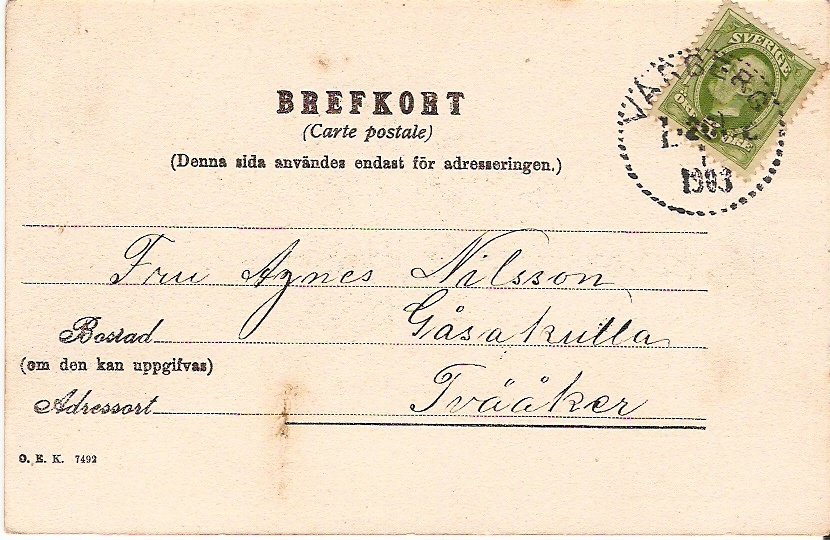 SVERIGE
VARBERG
ÖRE
1903
BREFKORT
(Carte postale)
(Denna sida användes endast för adresseringen.)
Fru Agnes Nilsson
Gåsakulla
Bostad
(om den kan uppgifvas)
Tvååker
Adressort
O. E. K. 7492